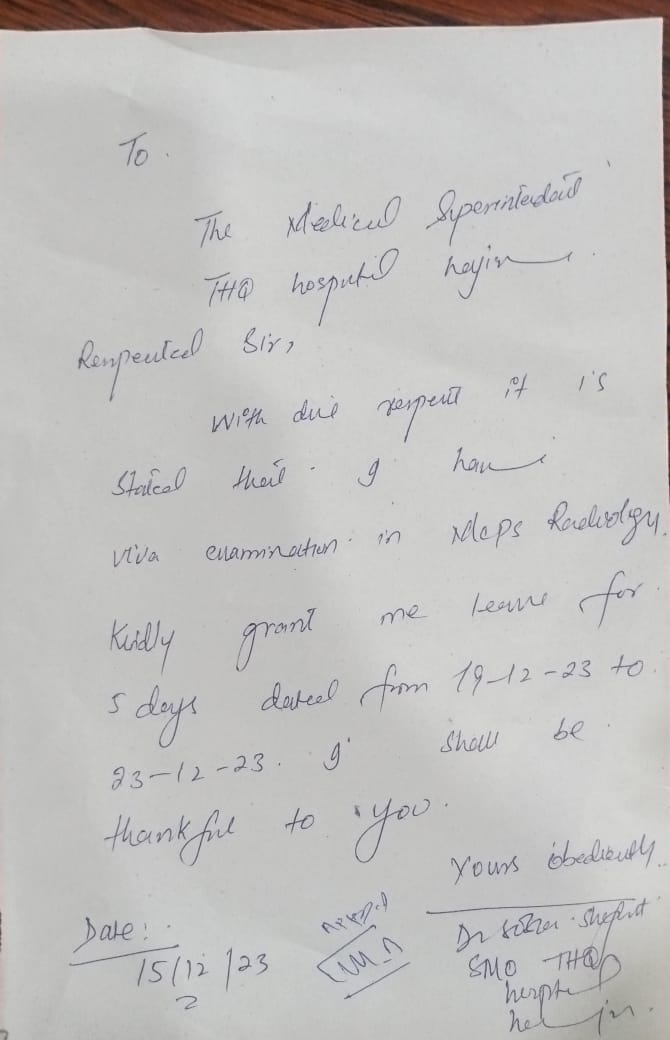 To.
The Medical Superintendant
THQ hospital
Respected Sir,
With due respect it is
Stated that I have
viva examination in Mcps Radiology.
Kindly grant me leave for
5 days dated from 19-12-23 to
23-12-23. I shall be
thankful to you.
Yours obediently
Date:
15/12/23
Dr
SMO THQ
hospital